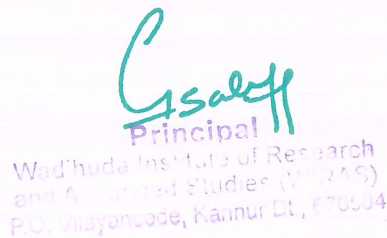 Principal
Wadihuda Institute of Research
and Advanced Studies (WIRAS)
P.O. Vilayancode, Kannur Dt., 670504